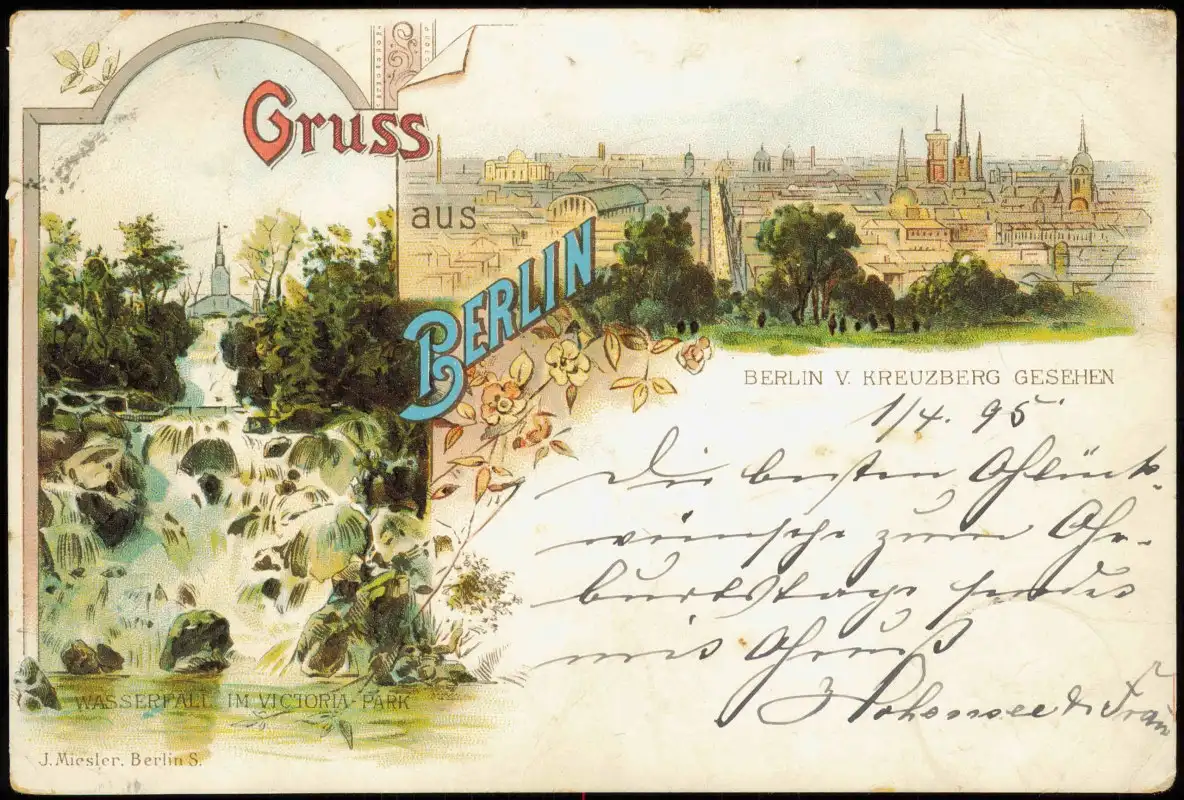 Gruss
aus
BERLIN
BERLIN V. KREUZBERG GESEHEN
1/4. 95.
Die besten Glück-
wünsche zum Ge-
burtstage sendet
mit Gruß
Hohensee & Frau
WASSERFALL IM VICTORIA-PARK
J. Miesler. Berlin S.